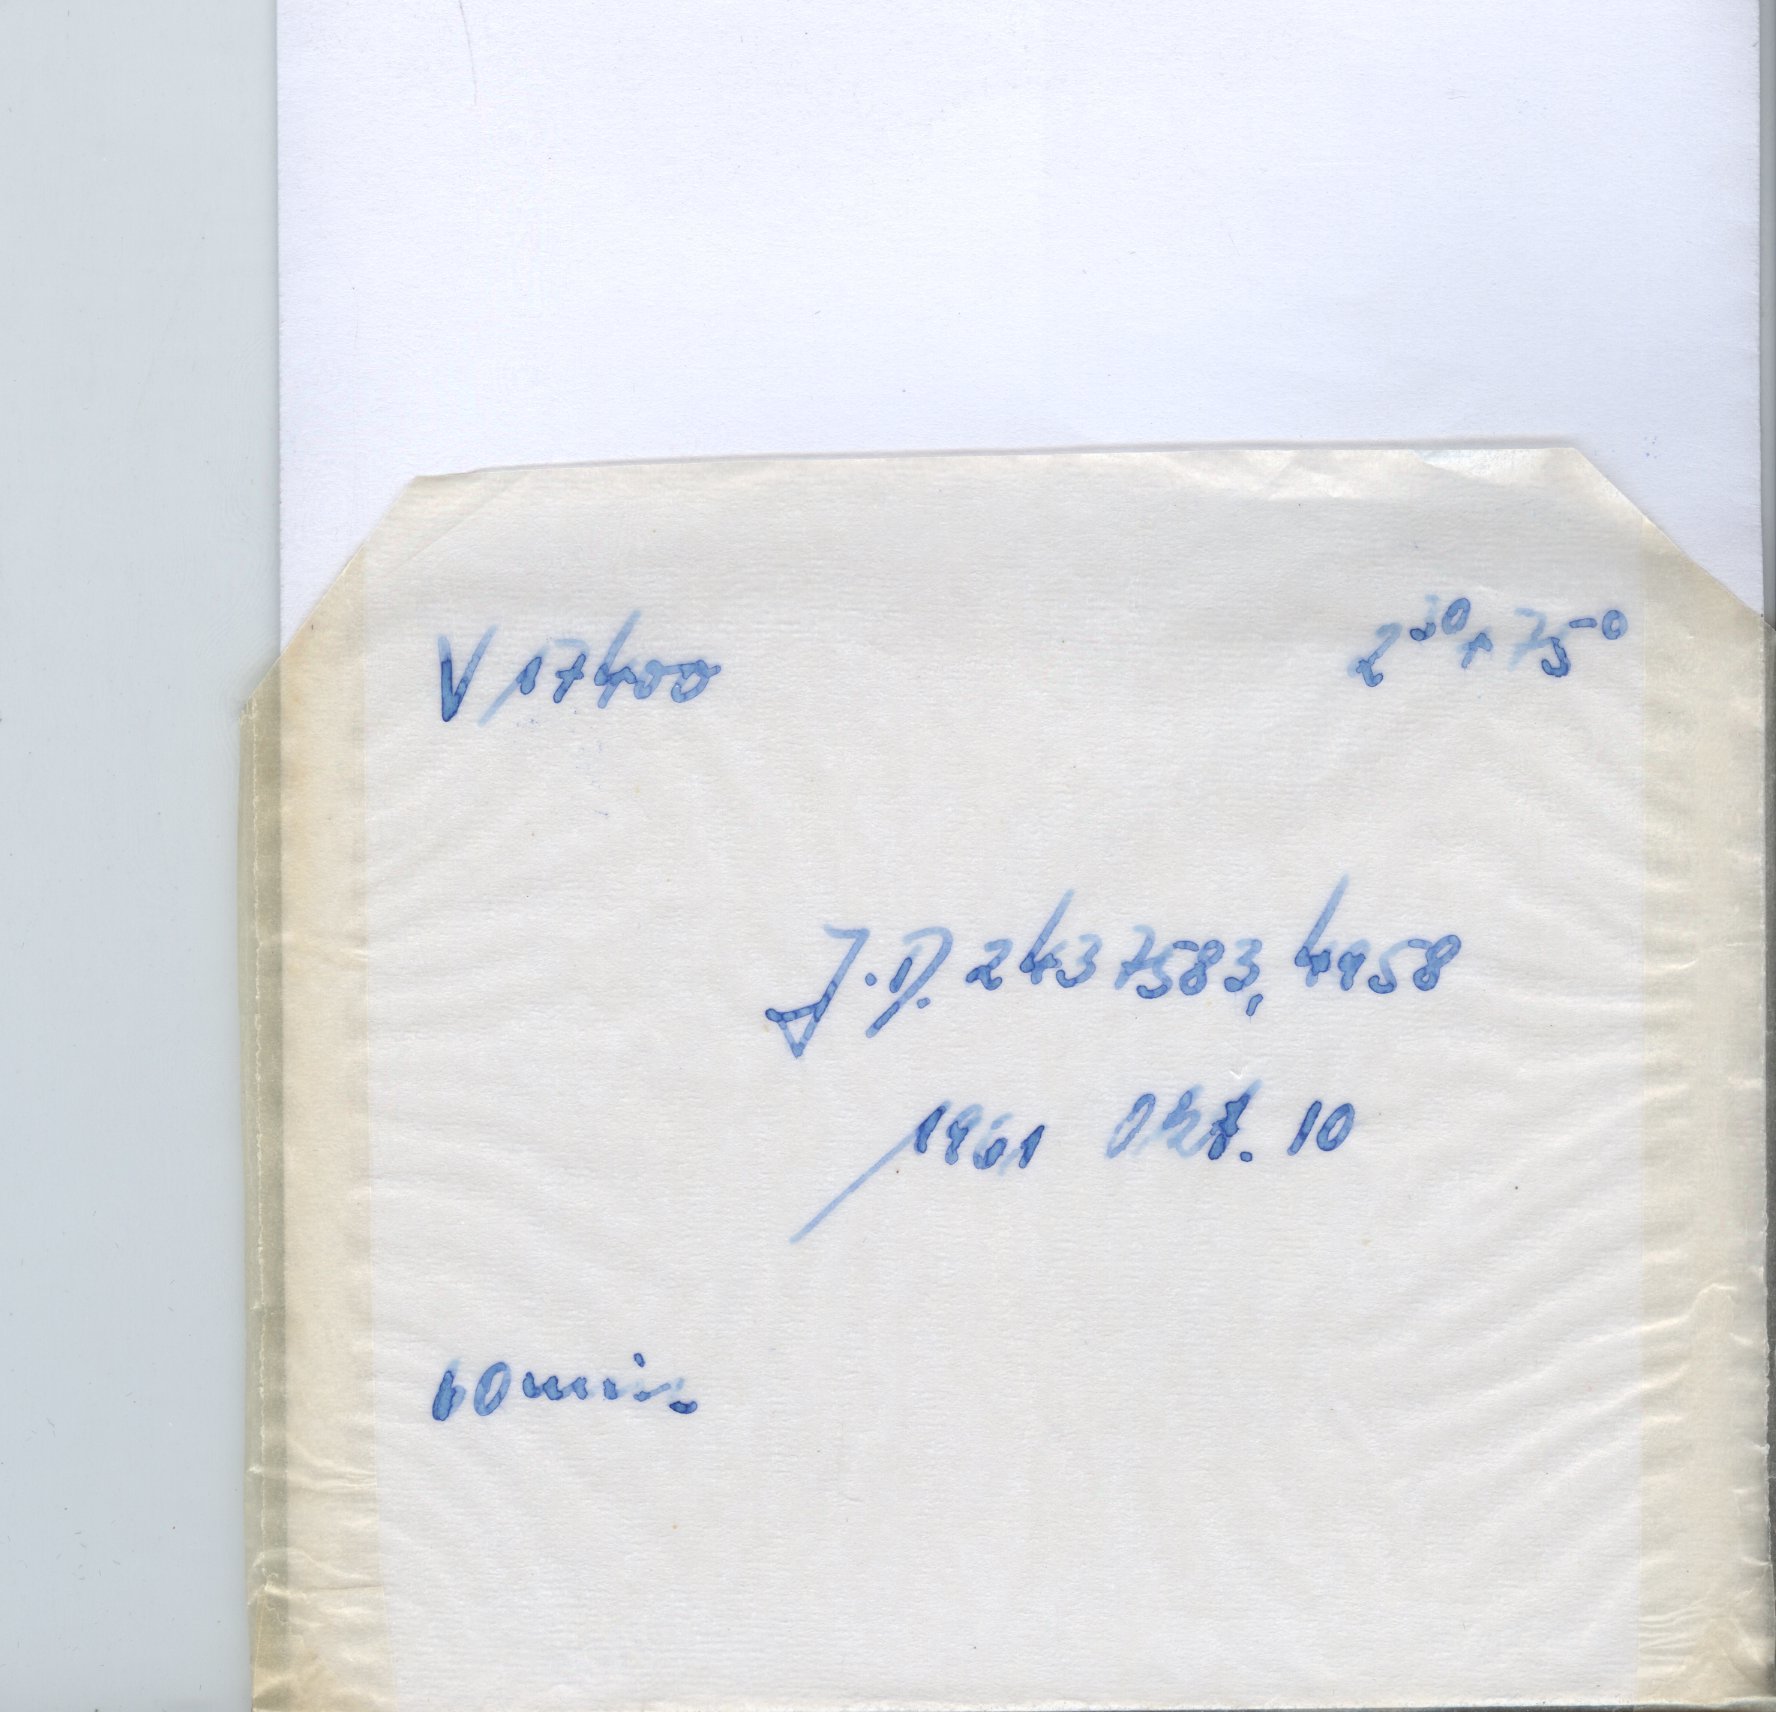 V 17400
2³⁰ + 75⁻⁰
J.D. 2437583,4958
1961 Okt. 10
60 min.